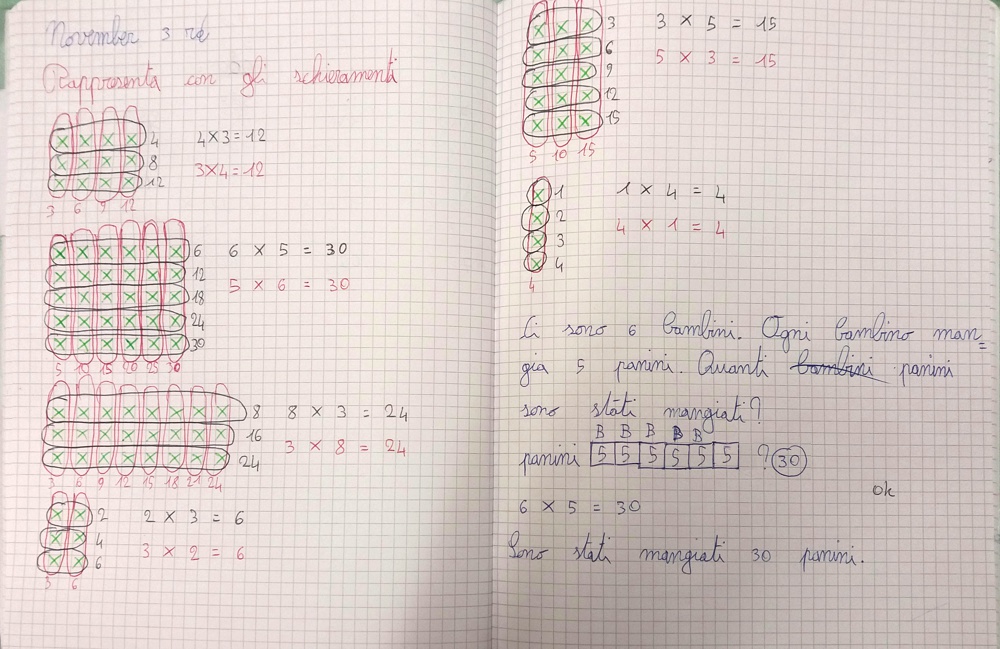 November 3 rd
Rappresenta con gli schieramenti
4 4×3=12
8 3×4=12
12
3 6 9 12
6 6 × 5 = 30
12
18 5 × 6 = 30
24
30
5 10 15 20 25 30
8 8 × 3 = 24
16 3 × 8 = 24
24
3 6 9 12 15 18 21 24
2 2 × 3 = 6
4
6 3 × 2 = 6
3 6
3 3 × 5 = 15
6 5 × 3 = 15
9
12
15
5 10 15
1 1 × 4 = 4
2 4 × 1 = 4
3
4
4
Ci sono 6 bambini. Ogni bambino man=
gia 5 panini. Quanti bambini panini
sono stati mangiati?
B B B B B
panini 5 5 5 5 5 5 ? 30
ok
6 × 5 = 30
Sono stati mangiati 30 panini.